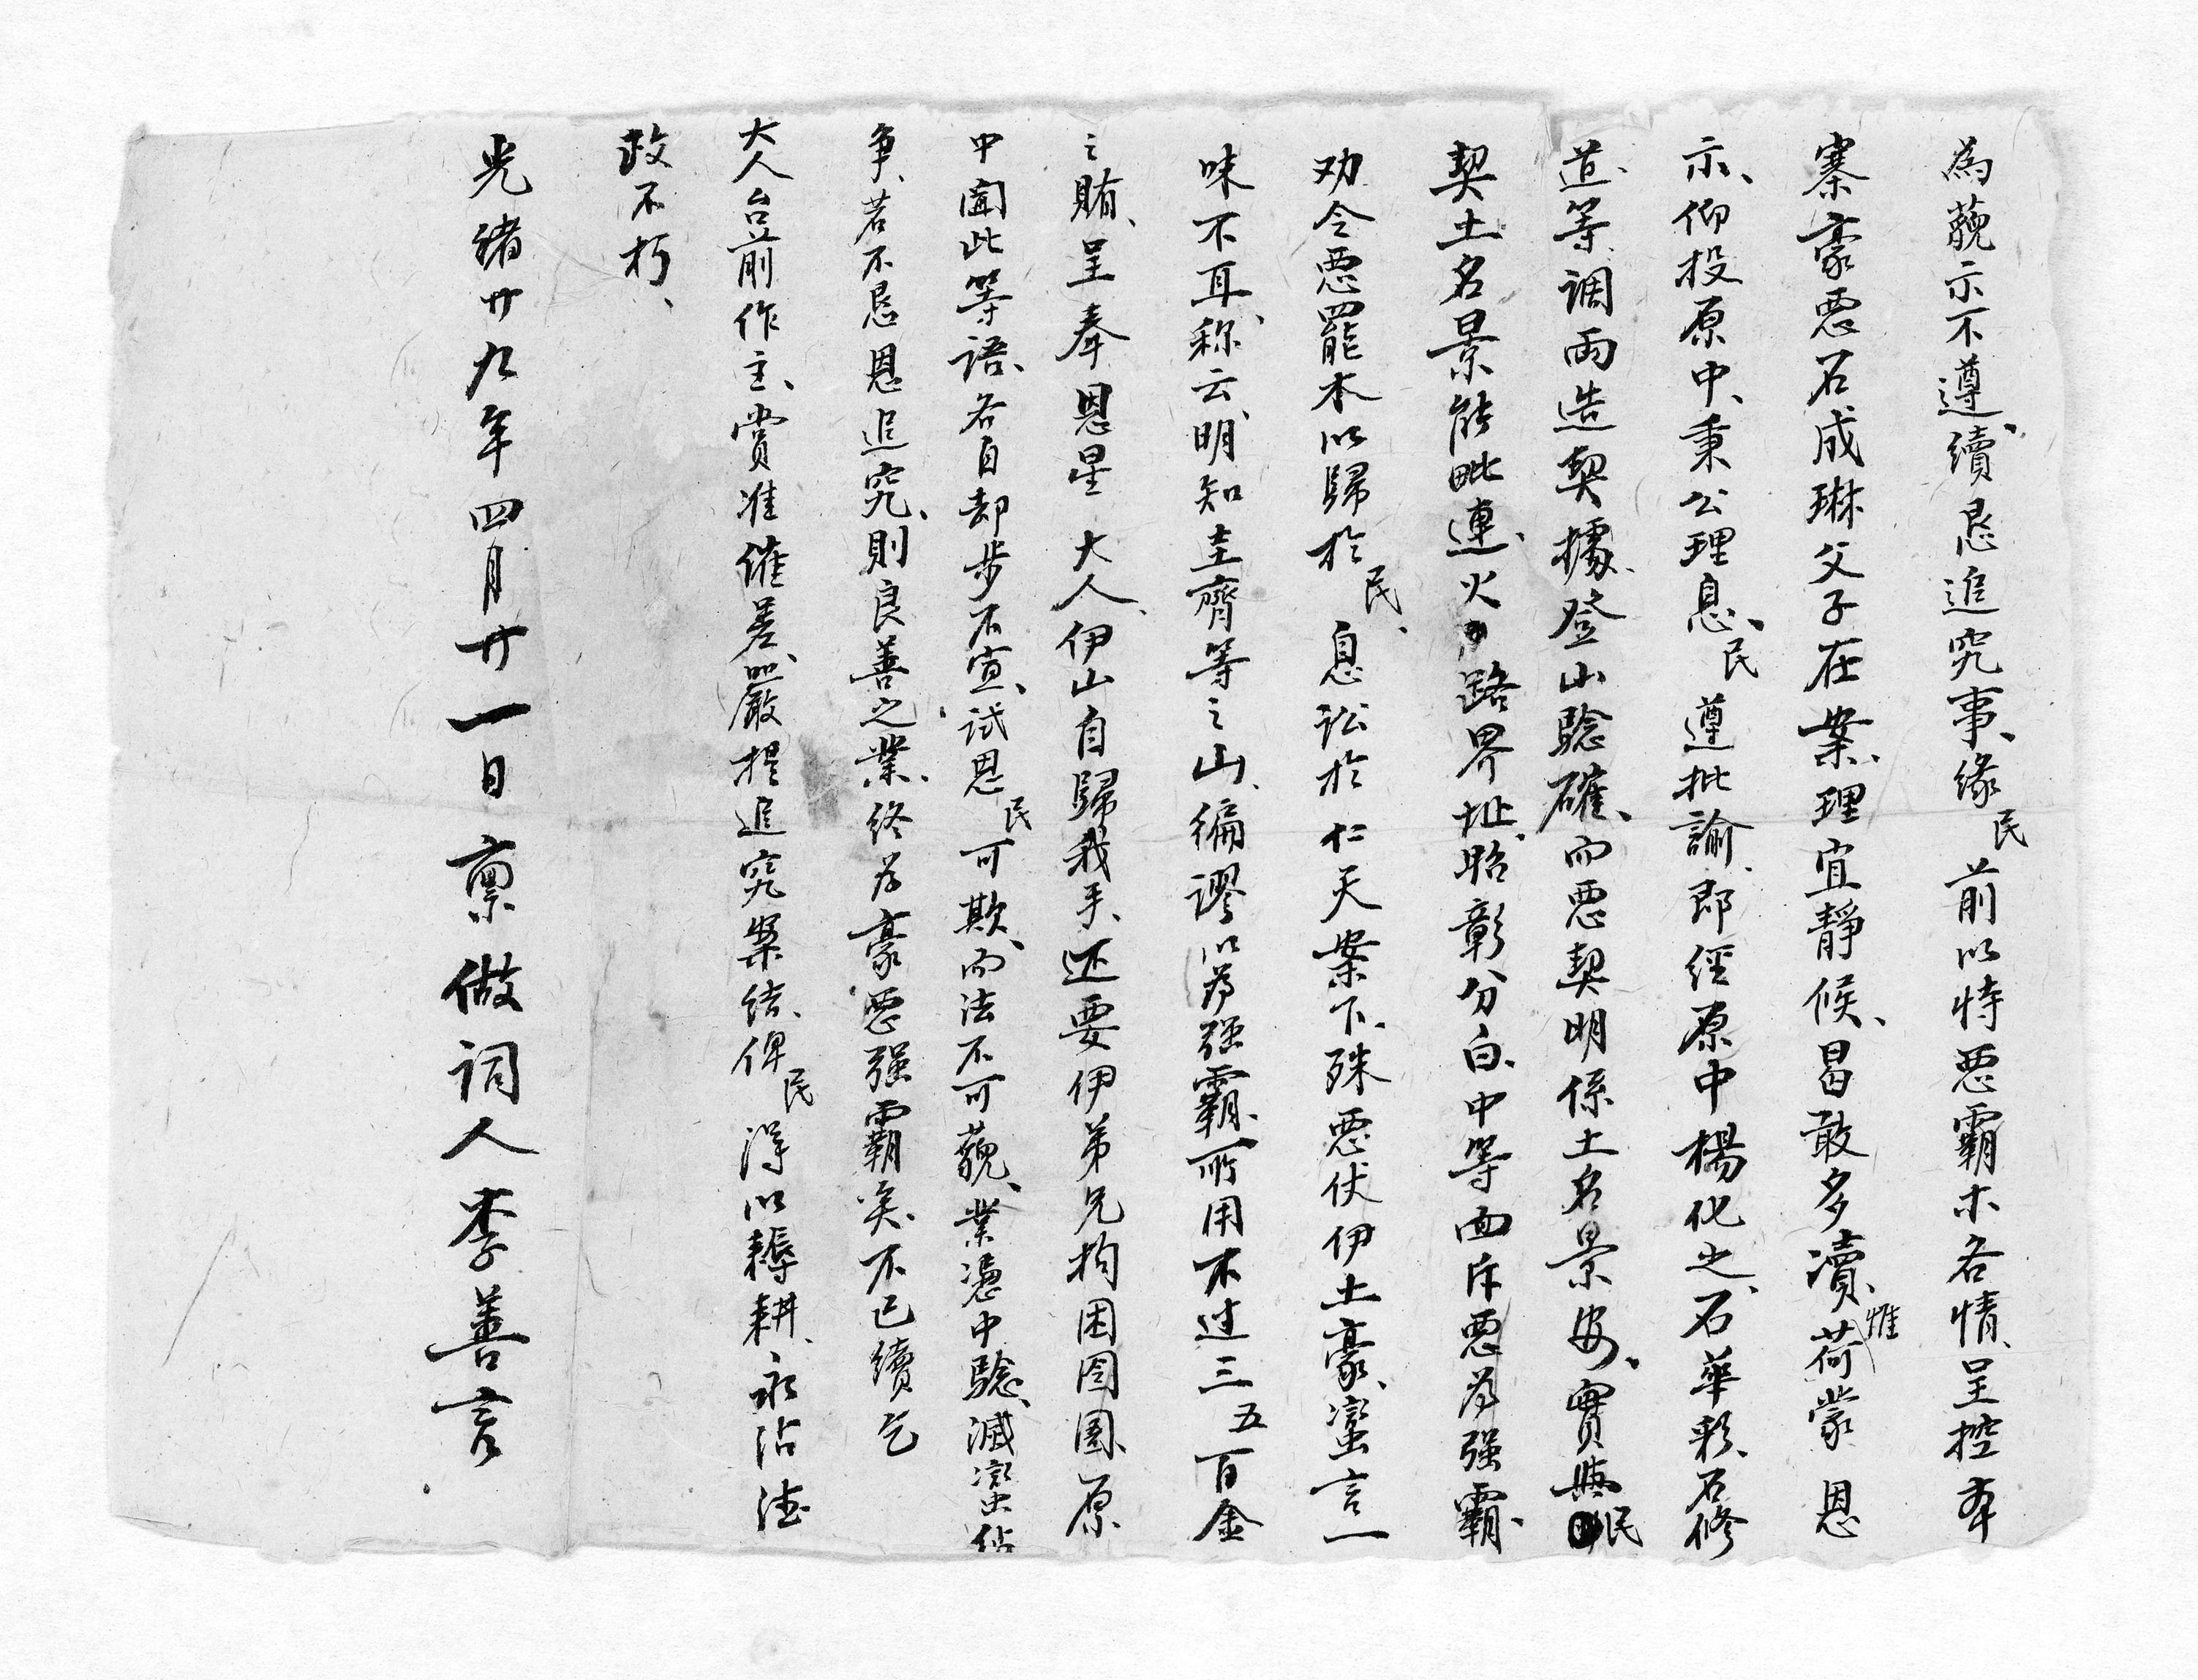 為藐示不遵、續恳追究事、緣民前以恃恶霸木各情、呈控本
寨豪恶石成琳父子在案、理宜靜候、曷敢多瀆、惟荷蒙 恩
示、仰投原中、秉公理息、民遵批諭、即經原中楊化之、石華彩、石修
道、等、调两造契據、登山騐確、而恶契明係土名景安、實與民
契土名景能毗連、火路界址、昭彰分白、中等面斥恶为强霸、
劝令恶罷木以歸於民、息訟於仁天案下、殊恶伏伊土豪、蛮言一
味不耳、称云、明知主齊等之山、編謬以为强霸、所用不过三五百金
之賄、呈奉恩星 大人、伊山自歸我手、还要伊弟兄拘困囹圄、原
中聞此等語、各自却步不宣、試思民可欺、而法不可藐、業憑中騐、滅蛮佔
争、若不恳恩追究、則良善之業、終为豪恶强霸矣、不已續乞
大人台前作主、賞准催差、嚴提追究案结、俾民得以耨耕、永沾德
政不朽、
光緒廿九年四月廿一日稟做词人李善言